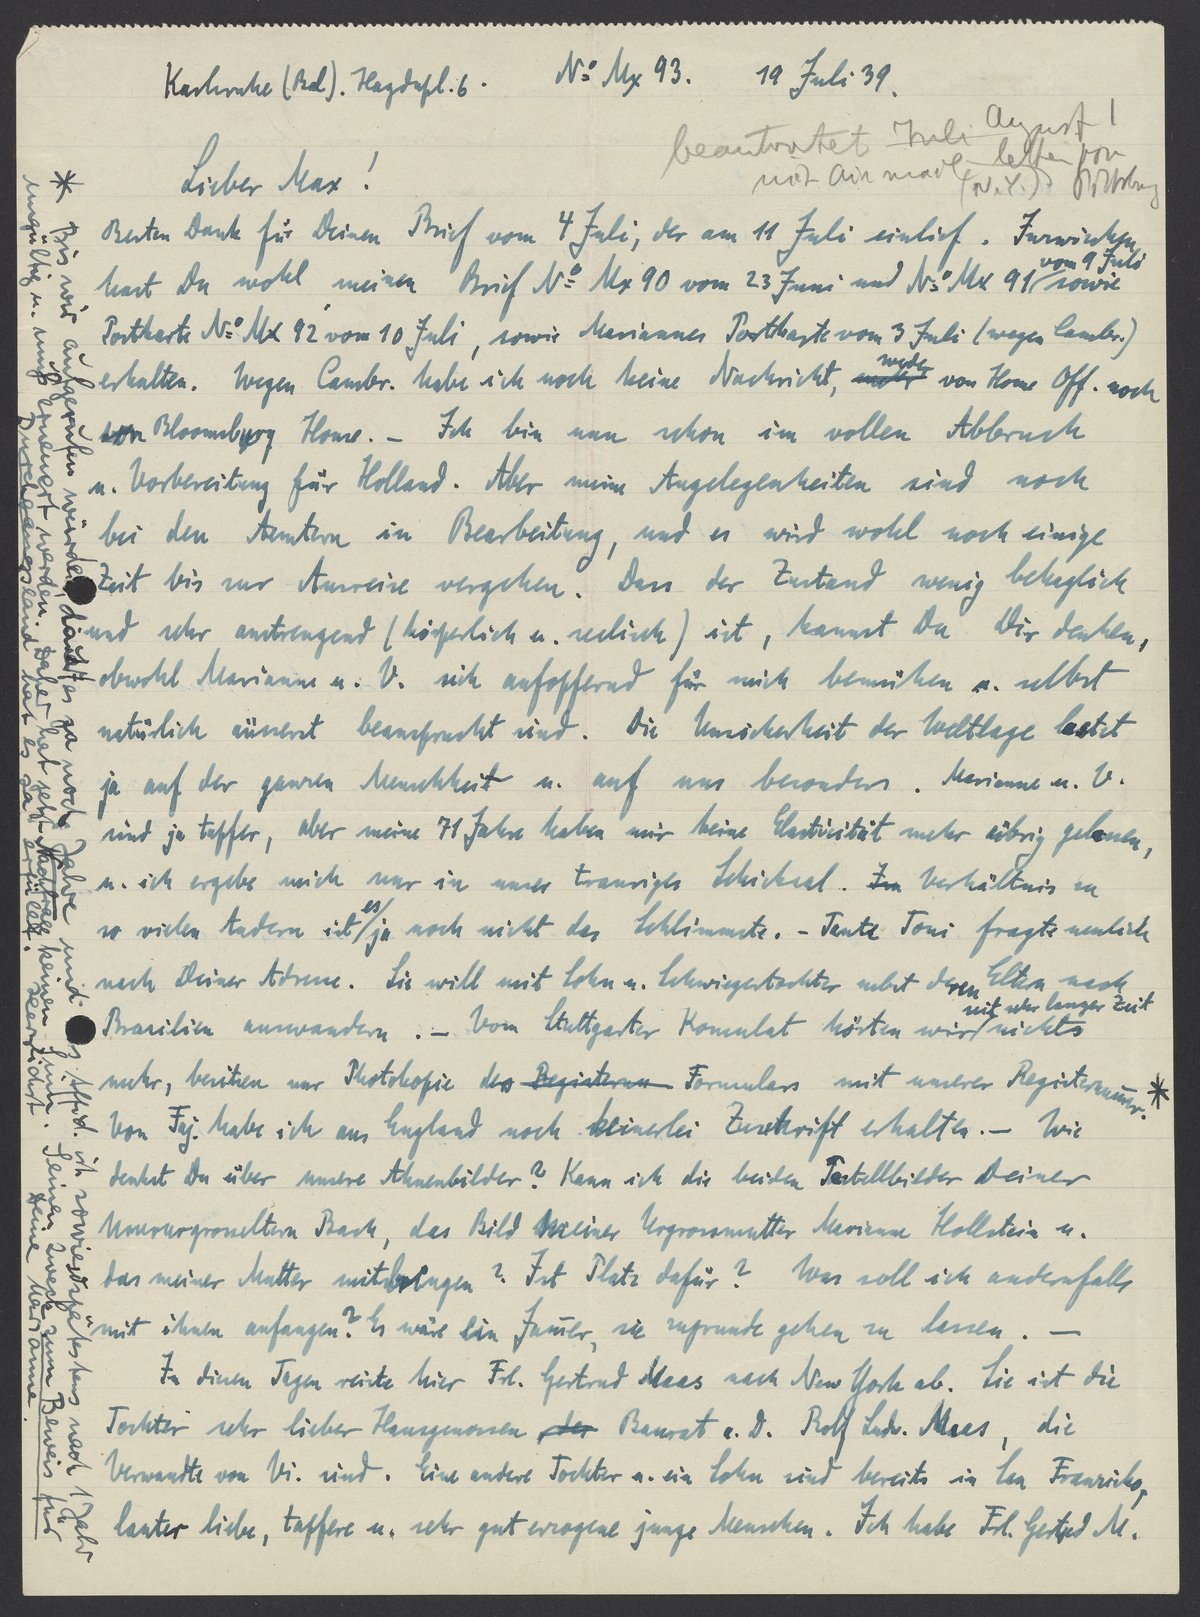 Karlsruhe (Bad). Haydnpl. 6. No Mx 93. 19 Juli 39.
beantwortet Juli August!
mit Air mail (N.Y.) von
Lieber Max!
Besten Dank für Deinen Brief vom 4 Juli, der am 11 Juli einlief. Inzwischen
hast Du wohl meinen Brief No Mx 90 vom 23 Juni und No Mx 91 vom 9 Juli sowie
Postkarte No Mx 92 vom 10 Juli, sowie Mariannes Postkarte vom 3 Juli (wegen Cambr.)
erhalten. Wegen Cambr. habe ich noch keine Nachricht, weder von Home Off. noch
von Bloomsbury House. – Ich bin nun schon im vollen Abbruch
u. Vorbereitung für Holland. Aber meine Angelegenheiten sind noch
bei den Aemtern in Bearbeitung, und es wird wohl noch einige
Zeit bis zur Ausreise vergehen. Dass der Zustand wenig behaglich
und sehr anstrengend (körperlich u. seelisch) ist, kannst Du Dir denken,
obwohl Marianne u. V. sich aufopfernd für mich bemühen u. selbst
natürlich äusserst beansprucht sind. Die Unsicherheit der Weltlage lastet
ja auf der ganzen Menschheit u. auf uns besonders. Marianne u. V.
sind ja tapfer, aber meine 71 Jahre haben mir keine Elasticität mehr übrig gelassen,
u. ich ergebe mich nur in unser trauriges Schicksal. Im Verhältnis zu
so vielen Andern ist es ja noch nicht das Schlimmste. – Tante Toni fragte neulich
nach Deiner Adresse. Sie will mit Sohn u. Schwiegertochter nebst deren Eltern nach
Brasilien auswandern. – Vom Stuttgarter Konsulat hörten wir seit sehr langer Zeit nichts
mehr, besitzen nur Photokopie des Registern Formulars mit unserer Registernum̄er. *
Von Faj. habe ich aus England noch keinerlei Zuschrift erhalten. – Wie
denkst Du über unsere Ahnenbilder? Kann ich die beiden Pastellbilder Deiner
Ururgrosseltern Bach, das Bild meiner Urgrossmutter Marianne Hollstein u.
das meiner Mutter mitbringen? Ist Platz dafür? Was soll ich andernfalls
mit ihnen anfangen? Es wäre ein Jam̄er, sie zugrunde gehen zu lassen. –
In diesen Tagen reiste hier Frl. Gertrud Maas nach New York ab. Sie ist die
Tochter sehr lieber Hausgenossen der Baurat a. D. Rolf Ludw. Maas, die
Verwandte von Vi. sind. Eine andere Tochter u. ein Sohn sind bereits in San Franzisko,
lauter liebe, tapfere u. sehr gut erzogene junge Menschen. Ich habe Frl. Gertrud M.
* Bis wir aufgerufen würden, dauert es ja noch Jahre und das Affid. ist sowieso spätestens nach 1 Jahr
ungültig u. muss erneuert werden. Daher hat jetzt keinen Sinn. Seinen Zweck zum Beweis für
Durchgangsland hat es ja erfüllt. Deine Marianne.